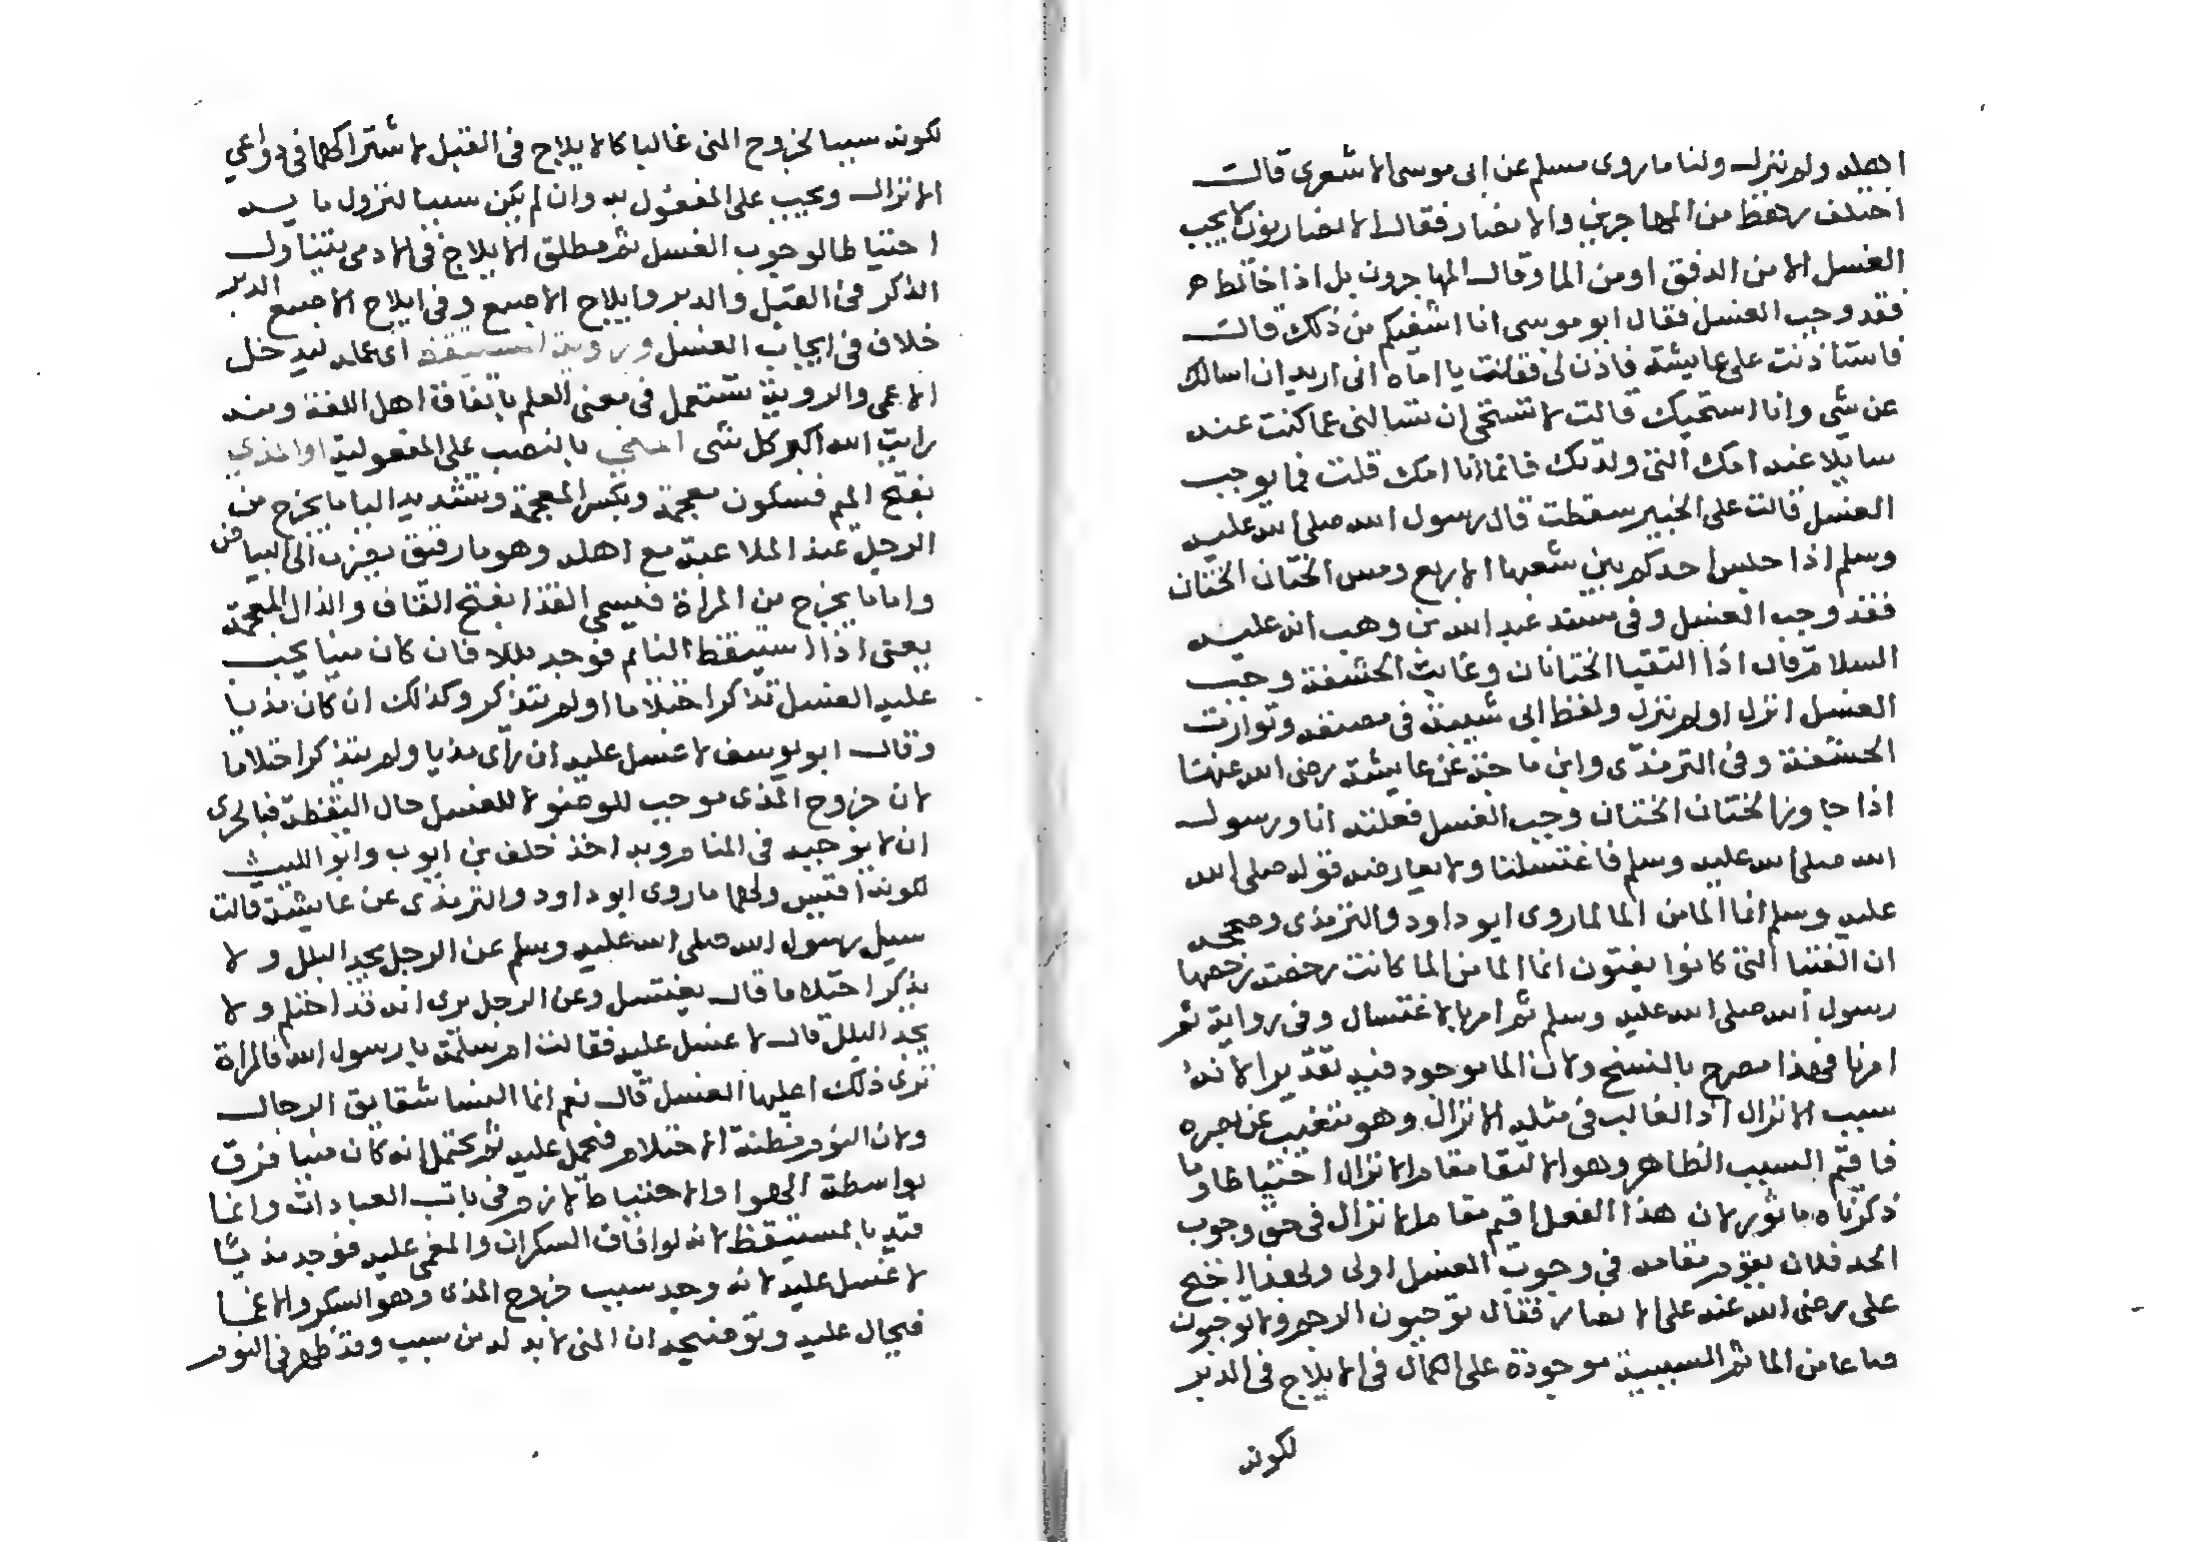 اهله ولم ننزل ولنا ما روى مسلم عن ابى موسى الاشعرى قال
اختلف رهط من المهاجرين والانصار فقال الانصاريون لا يجب
الغسل الا من الدفق او من الما وقال المهاجرون بل اذا خالط
فقد وجب الغسل فقال ابو موسى انا اشفيكم من ذلك قال
فاستاذنت على عايشة فاذن لى فقلت يا اماه انى اريد ان اسالك
عن شى وانا استحيك قالت لا تستحى ان تسالنى عما كنت عنه
سايلا عنه امك التى ولدتك فانما انا امك قلت فما يوجب
الغسل قالت على الخبير سقطت قال رسول الله صلى الله عليه
وسلم اذا جلس احدكم بين شعبها الاربع ومس الختان الختان
فقد وجب الغسل وفى مسند عبد الله بن وهب انه عليه
السلام قال اذا التقيا الختانان وغابت الحشفة وجب
الغسل انزل اولم ننزل ولفظ ابى شيبة فى مصنفه وتوارت
الحشفة وفى الترمذى وابن ماجة عن عايشة رضى الله عنها
اذا جاوز الختان الختان وجب الغسل فعلته انا ورسول
الله صلى الله عليه وسلم فاغتسلنا ولا يعارضه قوله صلى الله
عليه وسلم انما الما من الما لما روى ابو داود والترمذى وصححه
ان الفتيا التى كانوا يفتون انما الما من الما كانت رخصة رخصها
رسول الله صلى الله عليه وسلم ثم امرنا بالاغتسال وفى رواية ثم
امرنا فهذا مصرح بالنسخ ولان الما موجود فيه تقديرا لانه
سبب الانزال اذ الغالب فى مثله الانزال وهو متغيب عن بصره
فاقيم السبب الظاهر وهو الالتقا مقام الانزال احتياطا وما
ذكرناه ما نور لان هذا الفعل اقيم مقام الانزال فى حق وجوب
الحد فلان يقوم مقامه فى وجوب الغسل اولى ولهذا احتج
على رضى الله عنه على الانصار فقال توجبون الرجم ولا توجبون
صاعا من الما ثم السببية موجودة على الكمال فى الايلاج فى الدبر
لكونه
لكونه سببا لخروج المنى غالبا كالايلاج فى القبل لاشتراكهما فى دواعى
الانزال ويجب على المفعول به وان لم يكن سببا لنزول مايه
احتياطا لوجوب الغسل ثم مطلق الايلاج فى الادمى يتناول
الذكر فى القبل والدبر وايلاج الاصبع وفى ايلاج الاصبع الدبر
خلاف فى ايجاب الغسل وروية المستيقظ اى علمه ليدخل
الاعمى والروية تستعمل فى معنى العلم باتفاق اهل اللغة ومنه
رايت الله اكبر كل شى المنى بالنصب على المفعولية او المذى
بفتح الميم فسكون معجمة وبكسر المعجمة وتشديد اليا ما يخرج من
الرجل عند الملاعبة مع اهله وهو ما رقيق يضرب الى البياض
واما ما يخرج من المراة فيسمى القذا بفتح القاف والذال المعجمة
يعنى اذا استيقظ النايم فوجد بللا فان كان منيا يجب
عليه الغسل تذكر احتلاما اولم يتذكر وكذلك ان كان مذيا
وقال ابو يوسف لا غسل عليه ان راى مذيا ولم يتذكر احتلاما
لان خروج المذى موجب للوضو لا للغسل حال اليقظة فبالحرى
ان لا يوجبه فى المنام وبه اخذ خلف بن ايوب وابو الليث
لكونه اقيس ولهما ما روى ابو داود والترمذى عن عايشة قالت
سيل رسول الله صلى الله عليه وسلم عن الرجل يجد البلل ولا
يذكر احتلاما قال يغتسل وعن الرجل يرى انه قد احتلم ولا
يجد البلل قال لا غسل عليه فقالت ام سلمة يا رسول الله فالمراة
ترى ذلك اعليها الغسل قال نعم انما النسا شقايق الرجال
ولان النوم مظنة الاحتلام فيحمل عليه ثم يحتمل انه كان منيا فرق
بواسطة الهوا والاحتياط لازم فى باب العبادات وانما
قيد بالمستيقظ لانه لو افاق السكران والمغمى عليه فوجد مذيا
لا غسل عليه لانه وجد سبب خروج المذى وهو السكر والاغما
فيحال عليه وتوضيحه ان المنى لا بد له من سبب وقد ظهر فى النوم